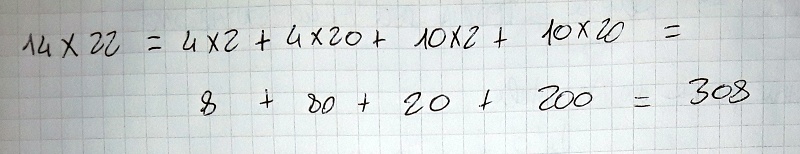 14 × 22 = 4×2 + 4×20 + 10×2 + 10×20 =
8 + 80 + 20 + 200 = 308